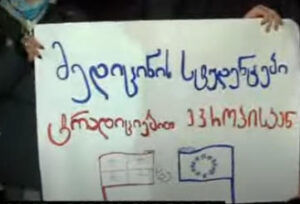 მედიცინის სტუდენტები
ტრადიციებით ევროპისკენ